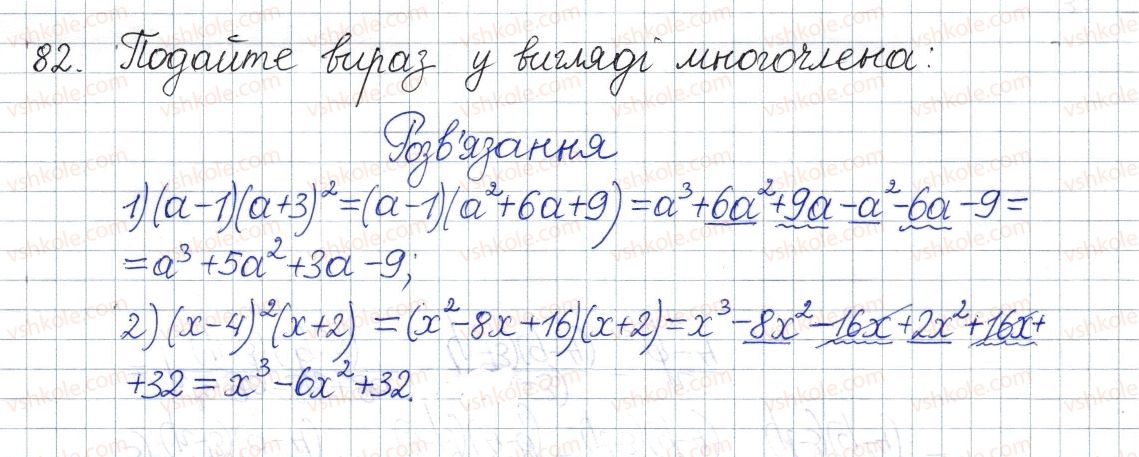 82. Подайте вираз у вигляді многочлена:
Розв'язання
1) (a-1)(a+3)²=(a-1)(a²+6a+9)=a³+6a²+9a-a²-6a-9=
=a³+5a²+3a-9;
2) (x-4)²(x+2)=(x²-8x+16)(x+2)=x³-8x²-16x+2x²+16x+
+32=x³-6x²+32.